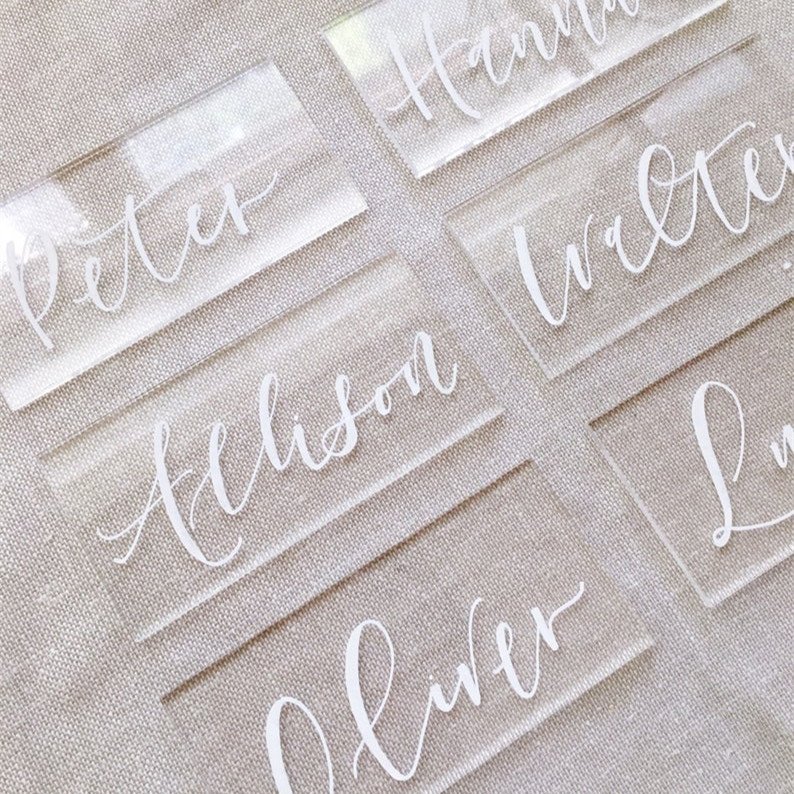 Hanna
Peter
Walter
Allison
Oliver